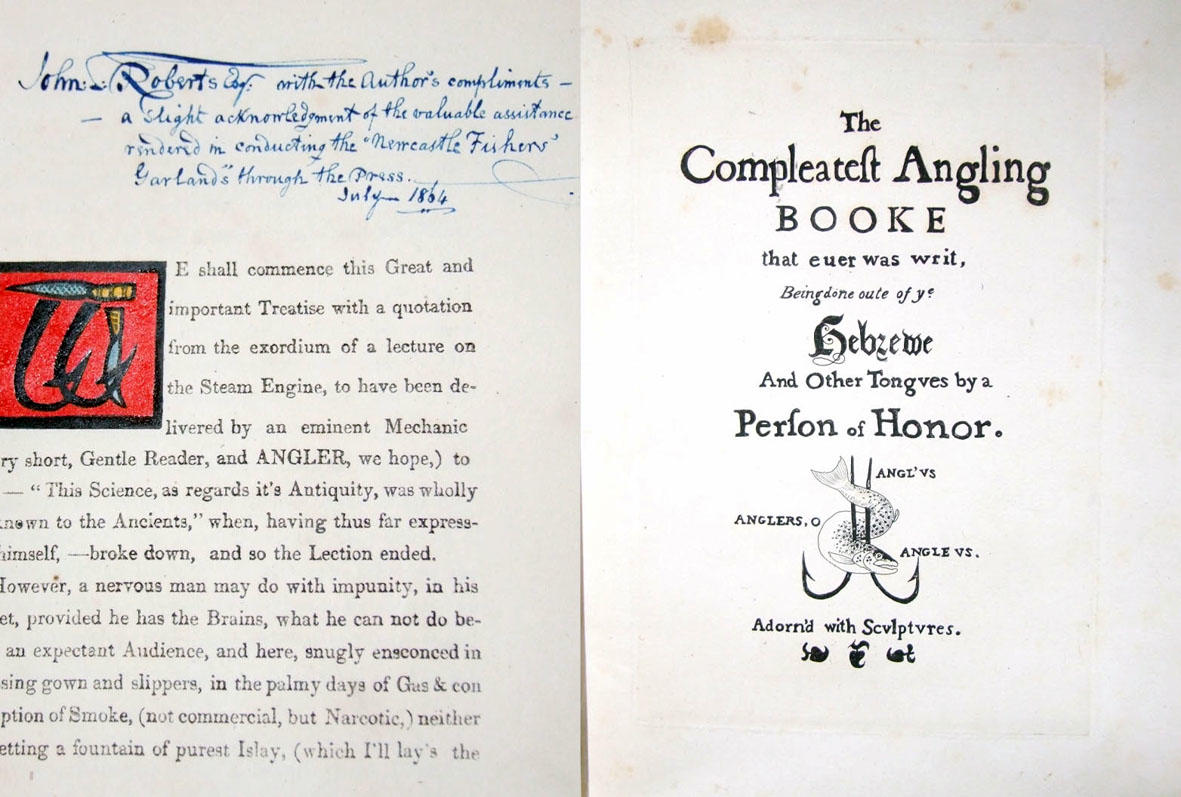 John L. Roberts Esq. with the Author's compliments —
— a slight acknowledgment of the valuable assistance
rendered in conducting the "Newcastle Fishers'
Garlands" through the Press.
July — 1864
WE shall commence this Great and
important Treatise with a quotation
from the exordium of a lecture on
the Steam Engine, to have been de-
livered by an eminent Mechanic
ry short, Gentle Reader, and ANGLER, we hope,) to
— "This Science, as regards it's Antiquity, was wholly
nown to the Ancients," when, having thus far express-
himself, —broke down, and so the Lection ended.
However, a nervous man may do with impunity, in his
et, provided he has the Brains, what he can not do be-
an expectant Audience, and here, snugly ensconced in
sing gown and slippers, in the palmy days of Gas & con
ption of Smoke, (not commercial, but Narcotic,) neither
etting a fountain of purest Islay, (which I'll lay's the
The
Compleatest Angling
BOOKE
that euer was writ,
Being done oute of yᵉ
Hebrewe
And Other Tongves by a
Perſon of Honor.
ANGL'VS
ANGLERS, O
ANGLE VS.
Adorn'd with Scvlptvres.